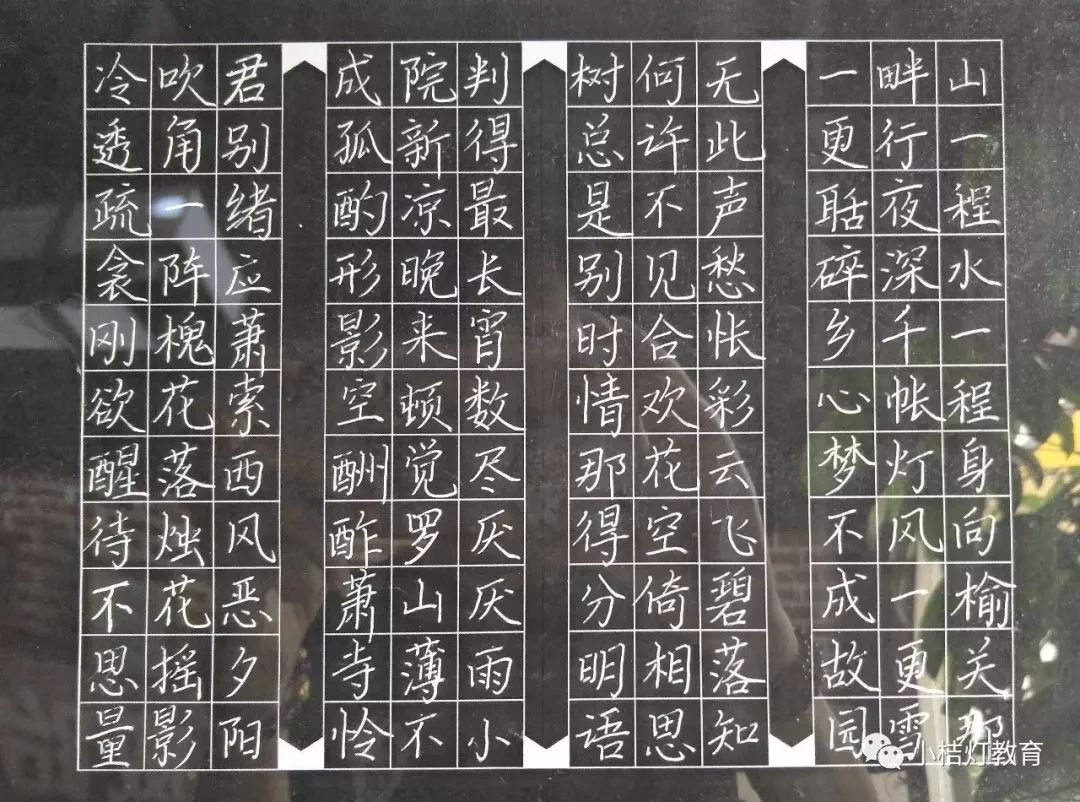 山一程水一程身向榆关那
畔行夜深千帐灯风一更雪
一更聒碎乡心梦不成故园
无此声愁怅彩云飞碧落知
何许不见合欢花空倚相思
树总是别时情那得分明语
判得最长宵数尽厌厌雨小
院新凉晚来顿觉罗山薄不
成孤酌形影空酬酢萧寺怜
君别绪应萧索西风恶夕阳
吹角一阵槐花落烛花摇影
冷透疏衾刚欲醒待不思量
小桔灯教育